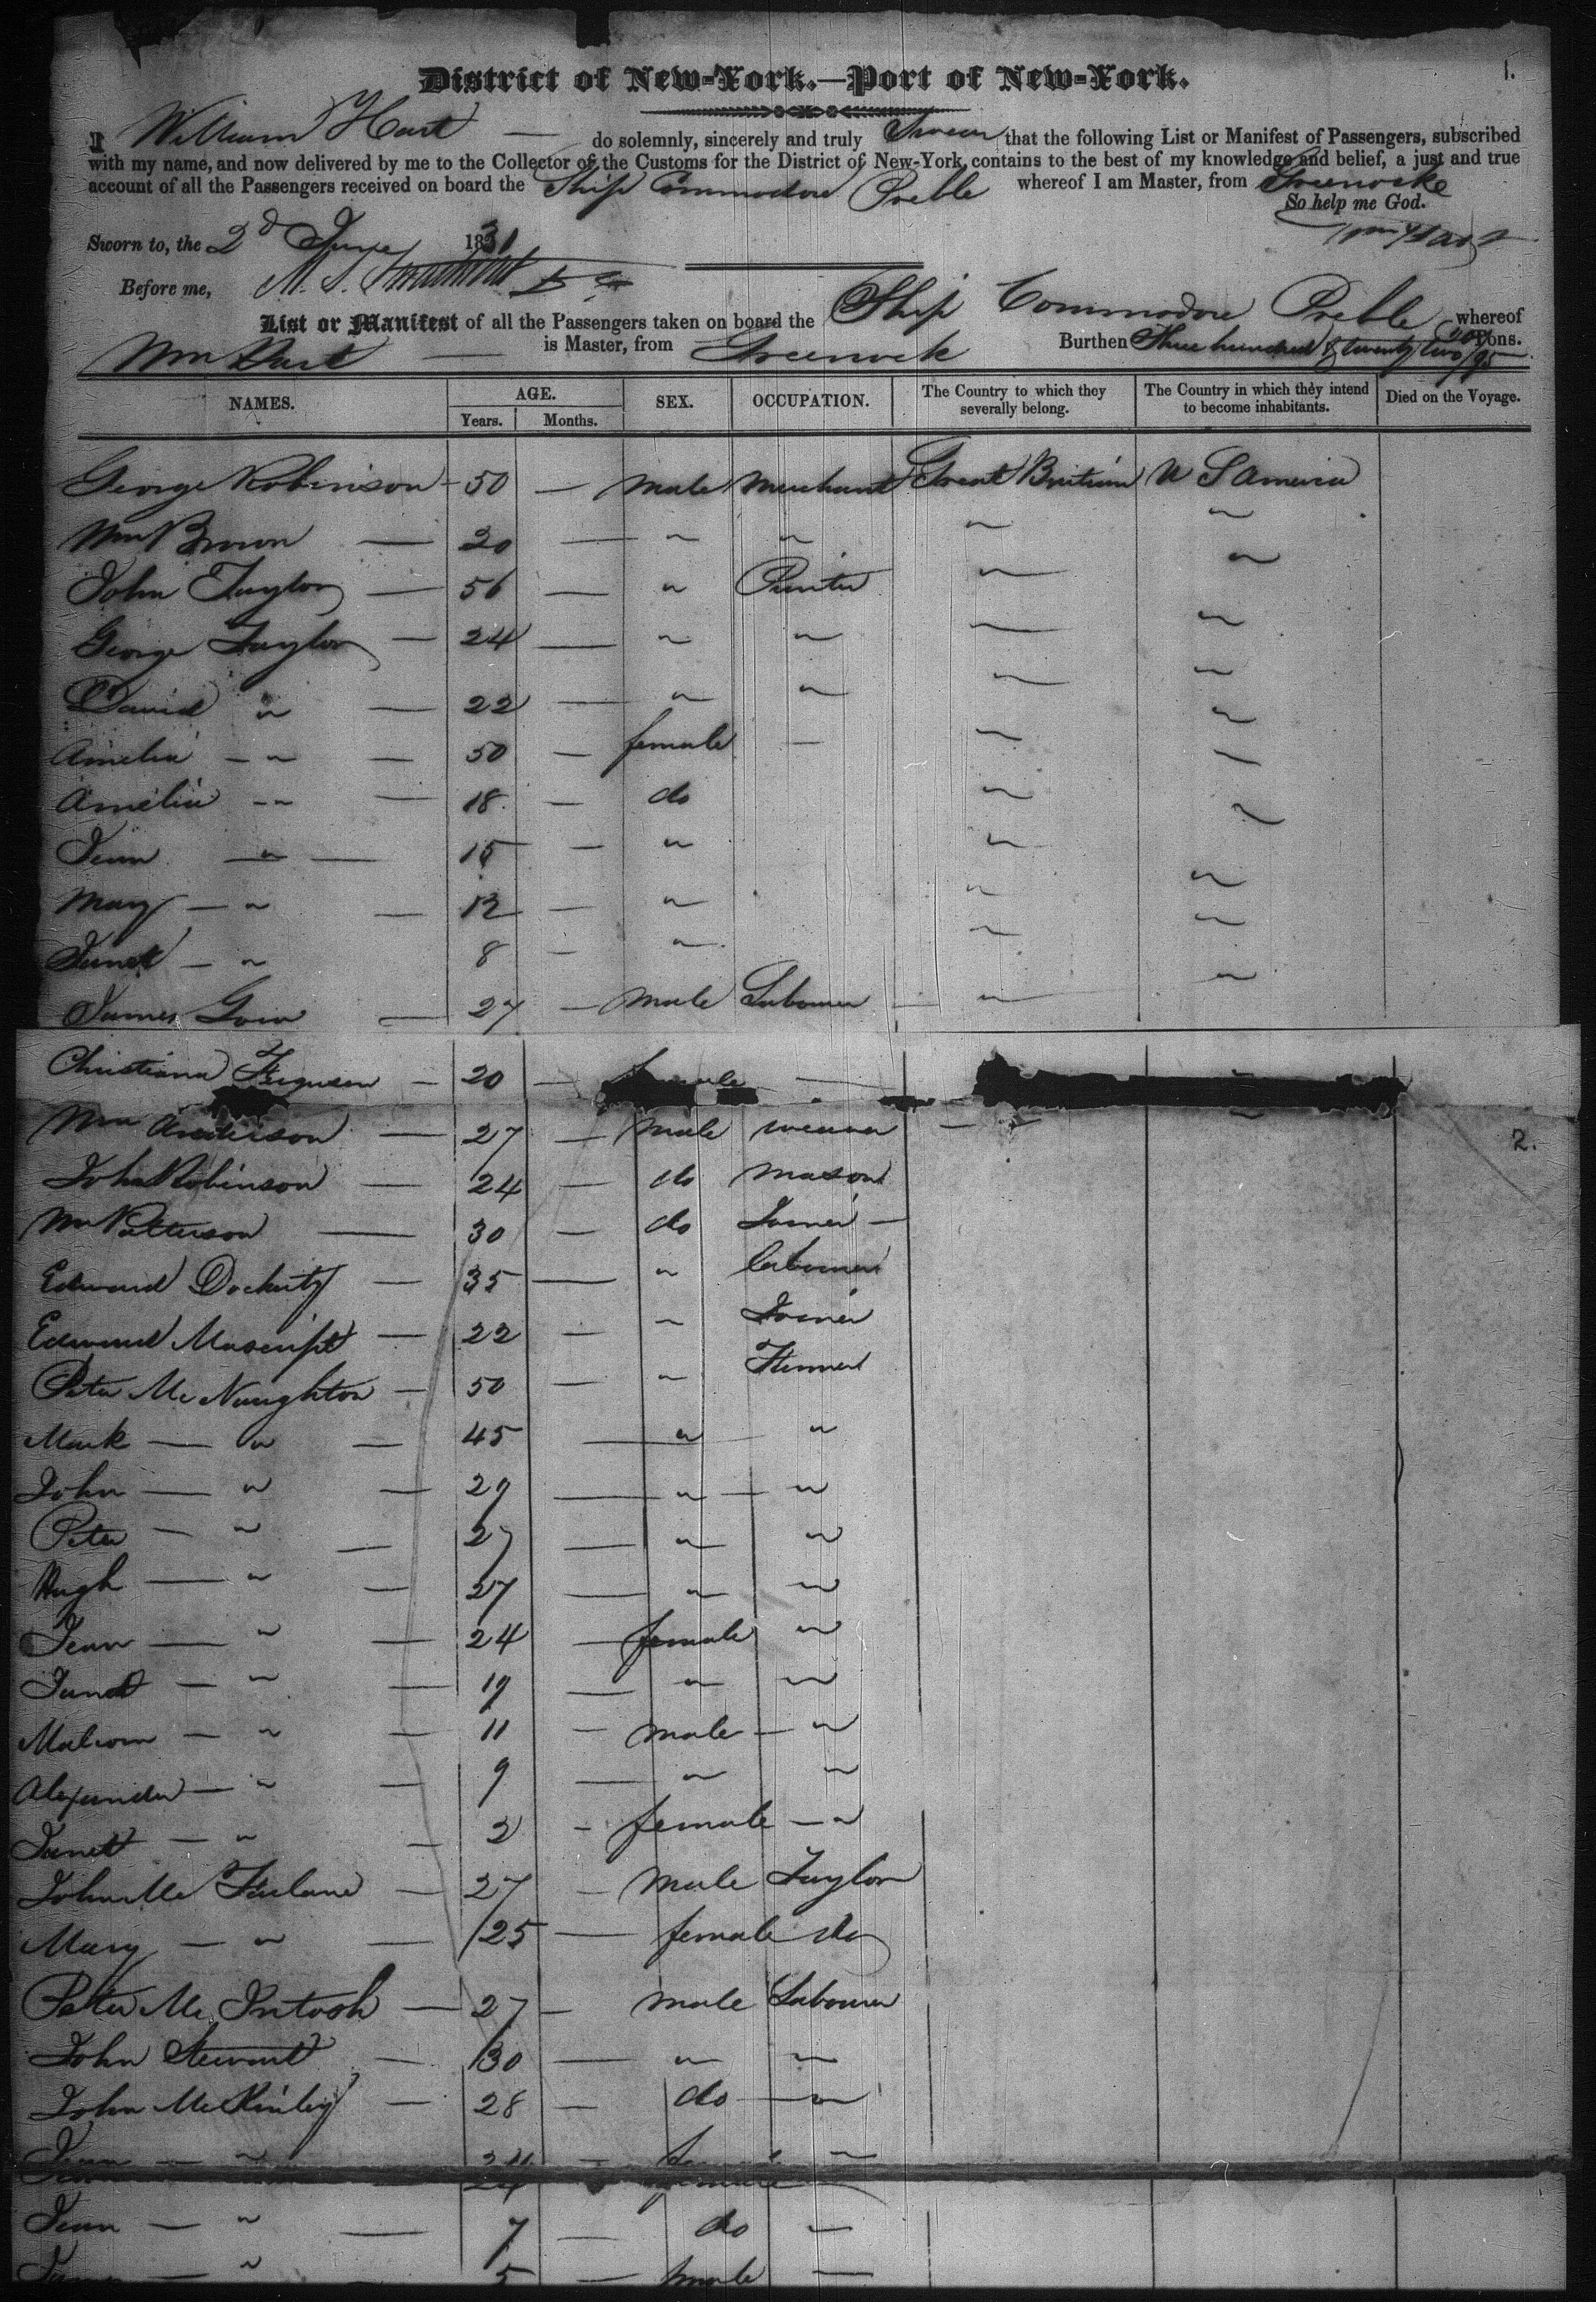 1.
District of New-York.—Port of New-York.
I William Hart — do solemnly, sincerely and truly Swear that the following List or Manifest of Passengers, subscribed
with my name, and now delivered by me to the Collector of the Customs for the District of New-York, contains to the best of my knowledge and belief, a just and true
account of all the Passengers received on board the Ship Commodore Preble whereof I am Master, from Greenocke
So help me God.
Sworn to, the 2d June 1831 Wm Hart
Before me, M. S.
List or Manifest of all the Passengers taken on board the Ship Commodore Preble whereof
Wm Hart — is Master, from Greenock Burthen Three hundred & twenty two /95 Tons.
NAMES. AGE. Years. Months. SEX. OCCUPATION. The Country to which they severally belong. The Country in which they intend to become inhabitants. Died on the Voyage.
George Robinson - 50 — male Merchant Great Britian U S America
Wm Brown — 20 — " " " "
John Taylor — 56 — " Printer " "
George Taylor — 24 — " " " "
David " — 22 — " " " "
Amelia - " — 50 — female — " "
Amelia - " — 18 — do " "
Jean — " — 15 — " " "
Mary — " — 12 — " " "
Janet — " 8 — " " "
James Gow — 27 — male Labourer — " "
Christiana Ferguson — 20 — female — "
Wm Anderson — 27 — male weaver — " "
John Robinson — 24 — do mason
Wm Patterson — 30 — do Joiner —
Edward Docherty — 35 — " labourer
Edward — 22 — " Joiner
Peter McNaughton — 50 — " Farmer
Mark — " — 45 — " "
John — " — 29 — " — "
Peter — " — 27 — " "
Hugh — " — 27 — " "
Jean — " — 24 — female "
Janet — " — 19 — " "
Malcom — " — 11 — male — "
Alexander — " — 9 — " "
Janet — " — 2 - female — "
John Mc Farlane — 27 — male Taylor
Mary — " — 25 — female do
Peter McIntosh — 27 — male Labourer
John Stewart — 30 — " "
John McKinley — 28 — do — "
Jean — " 24 — female "
Jean — " — 7 — do —
— " — 5 — male —
2.